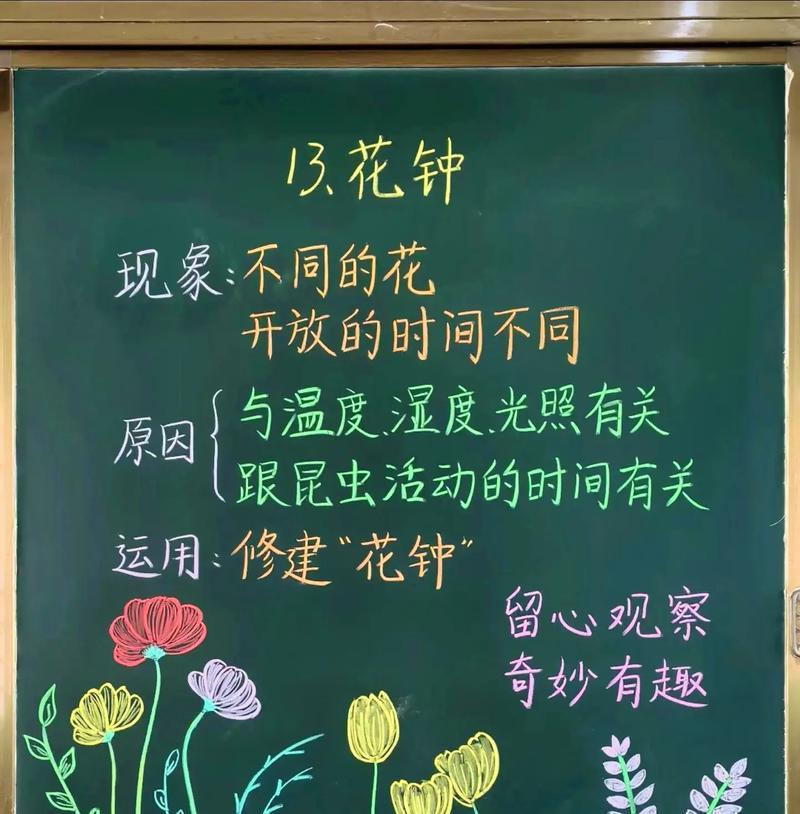 13、花钟
现象：不同的花
开放的时间不同
原因{与温度、湿度、光照有关
跟昆虫活动的时间有关
运用：修建“花钟”
留心观察
奇妙有趣